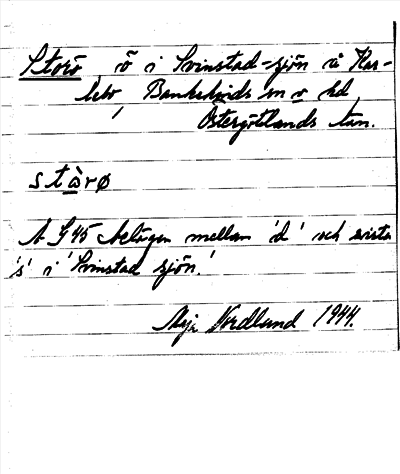 Storö, ö i Svinstad-sjön å Kar-
leby, Bankekinds sn o hd,
Östergötlands län.
stàrø
A G45 belägen mellan 'd' och sista
's' i 'Svinstad sjön.'
Maja Nordlund 1944.